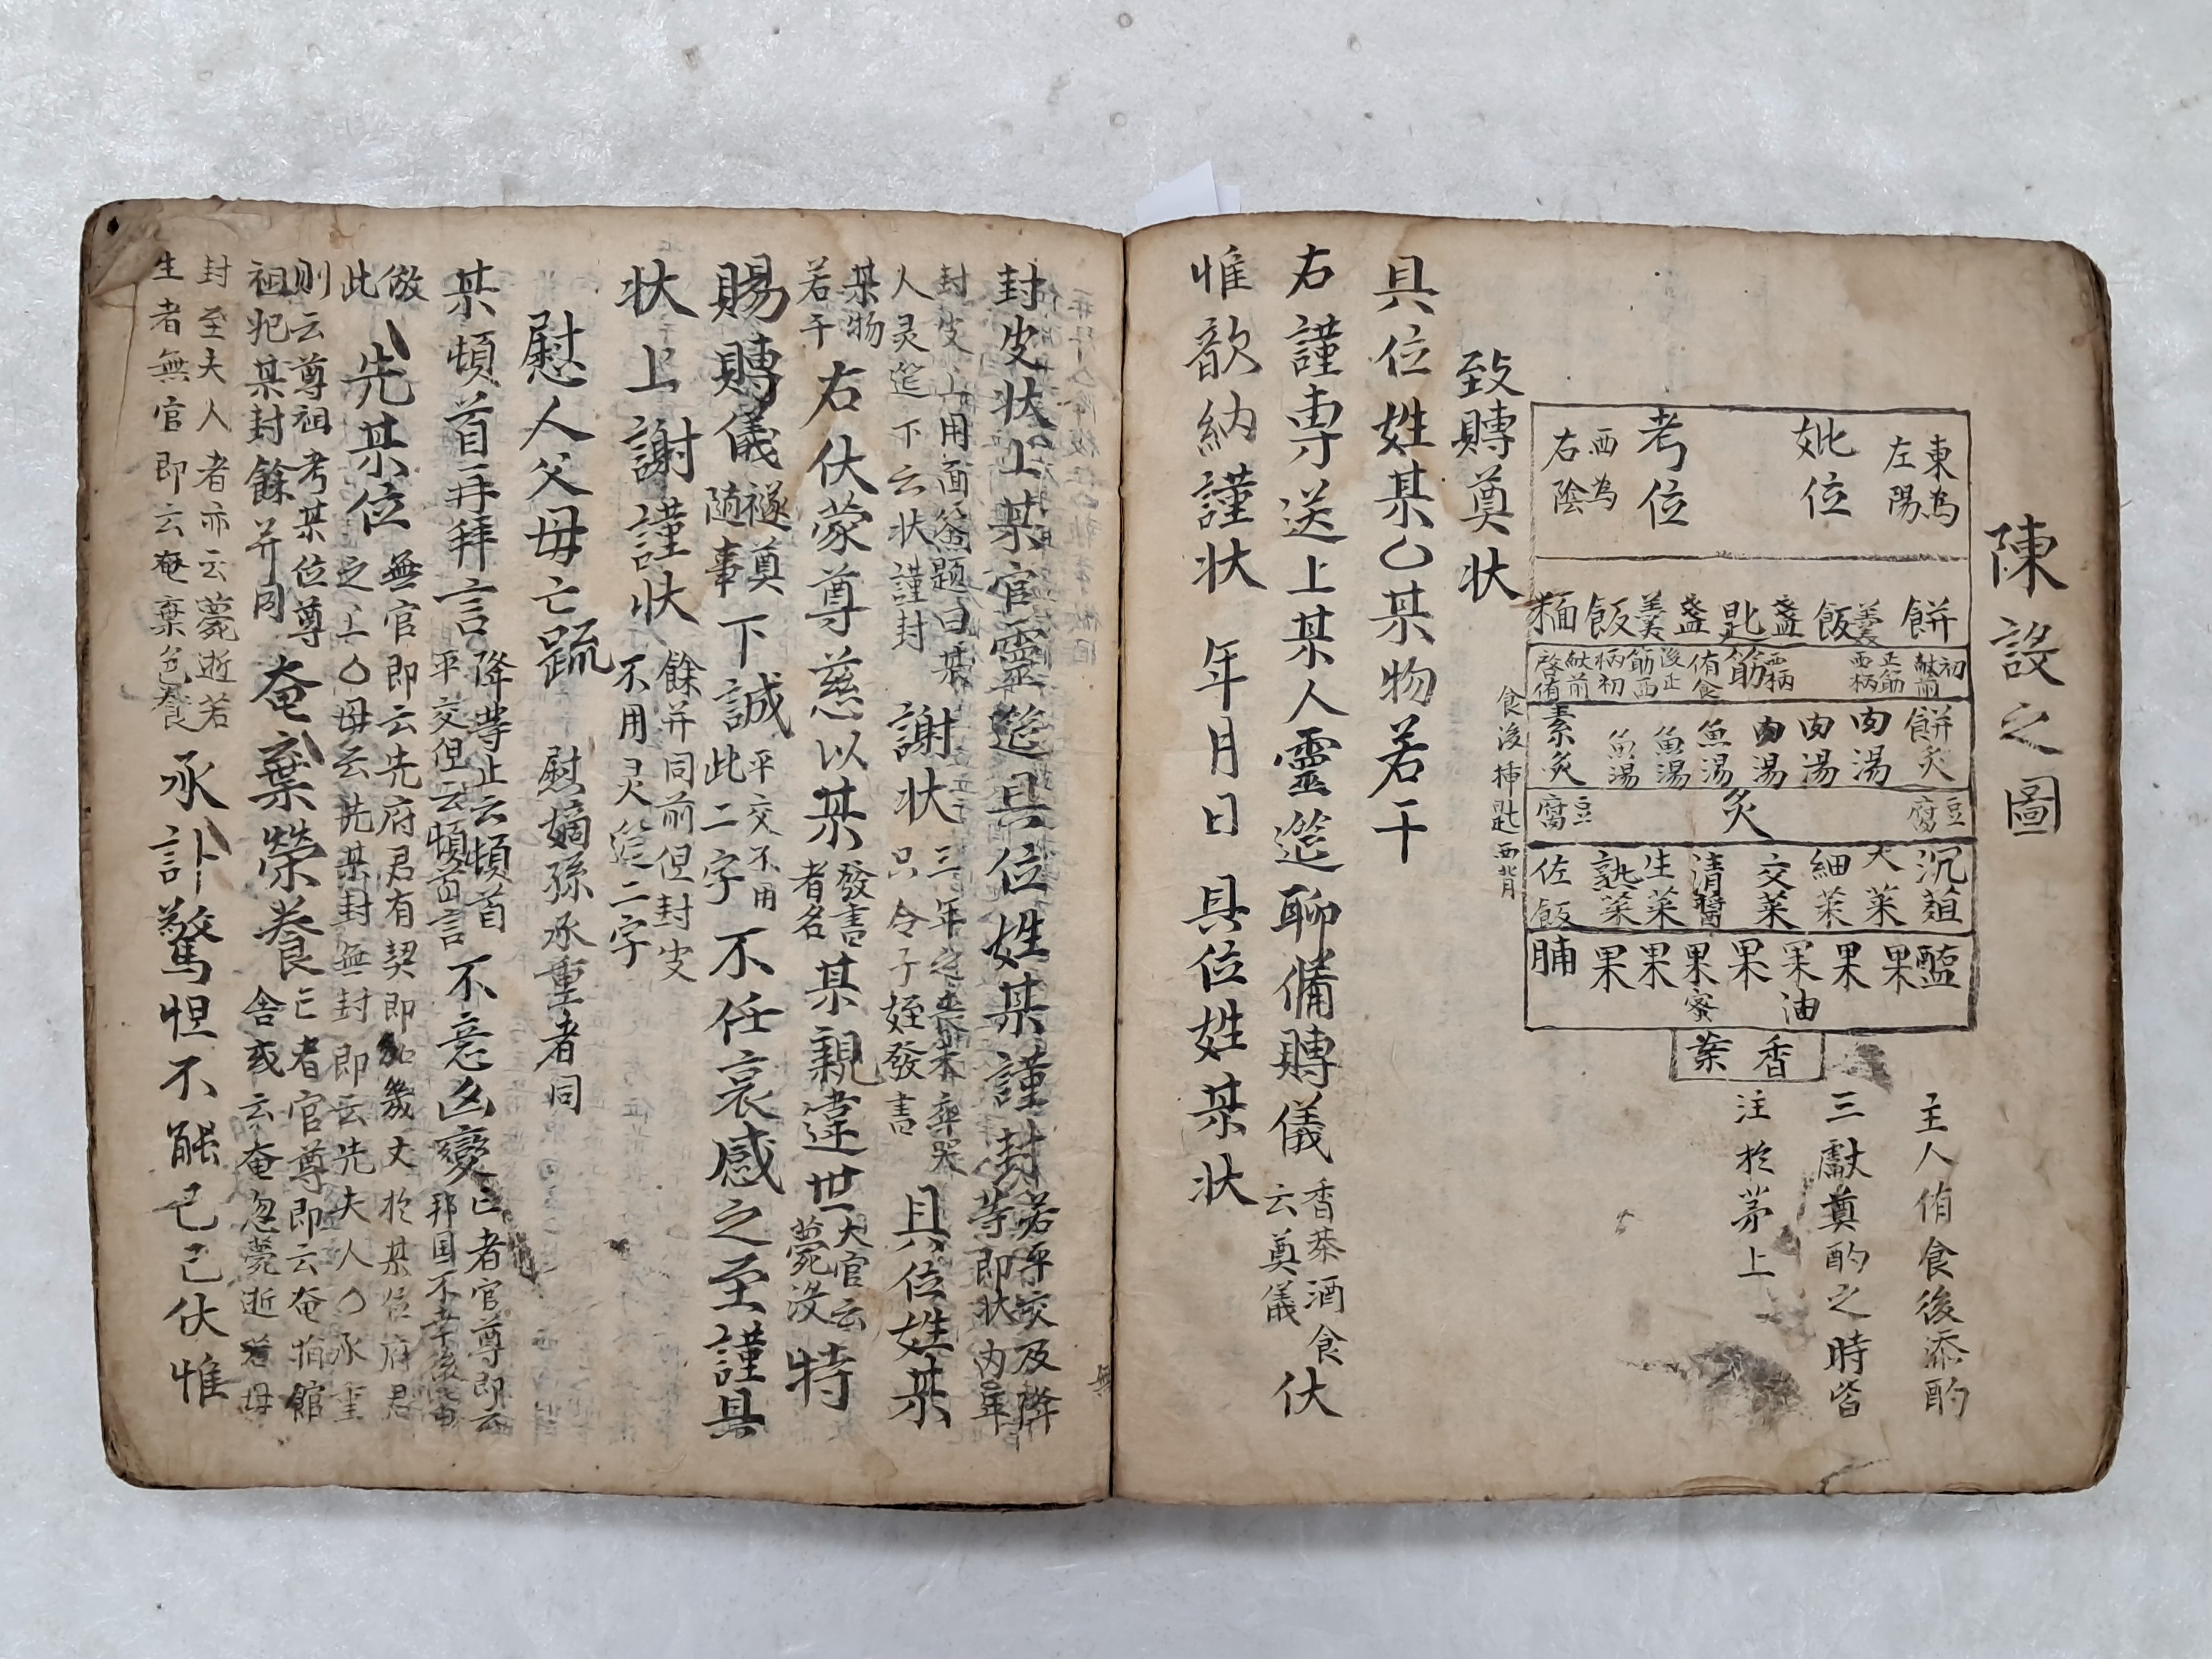 陳設之圖
東為
左陽
妣位
考位
西為
右陰
餅 羹 飯 盞 匙 盞 羹 飯 麵
初献前 正筯西柄 西柄 筯 侑食 後正 筯西 柄初 献前 啓侑
餅炙 肉湯 肉湯 肉湯 魚湯 魚湯 魚湯 素炙
豆腐 炙 豆腐
沉葅 大菜 細菜 交菜 清醬 生菜 熟菜 佐飯
醢 果 果 果 果 果 果 果 脯
油 蜜
香案
食後揷匙西背
主人侑食後添酌
三獻奠酌之時皆
注於茅上
致賻奠状
具位姓某〇某物若干
右謹専送上某人靈筵聊備賻儀 香茶酒食 云奠儀 伏
惟歆納謹状 年月日 具位姓某状
封皮状上某官靈筵具位姓某謹封 若平交及降 等即状内年
封皮上用面簽題曰某
人灵筵下云状謹封 謝状 三年之喪未卒哭 只令子姪發書 具位姓某
某物
若干 右伏蒙尊慈以某 發書 者名 某親違世 大官云 薨没 特
賜賻儀 襚奠 随事 下誠 平交不用 此二字 不任哀感之至謹具
状上謝謹状 餘并同前但封皮 不用灵筵二字
慰人父母亡疏 慰嫡孫承重者同
某頓首再拜言 降等止云頓首 平交但云頓首言 不意凶變 亡者官尊即云 邦国不幸後
倣
此 先某位 無官即云先府君有契即加幾丈於某位府君 之上〇母云先某封無封即云先夫人〇承重
則云尊祖考某位尊
祖妣某封餘并同 奄棄榮養 亡者官尊即云奄捐館 舍或云奄忽薨逝若母
封至夫人者亦云薨逝若
生者無官即云奄棄色養 承訃驚怛不能已已伏惟